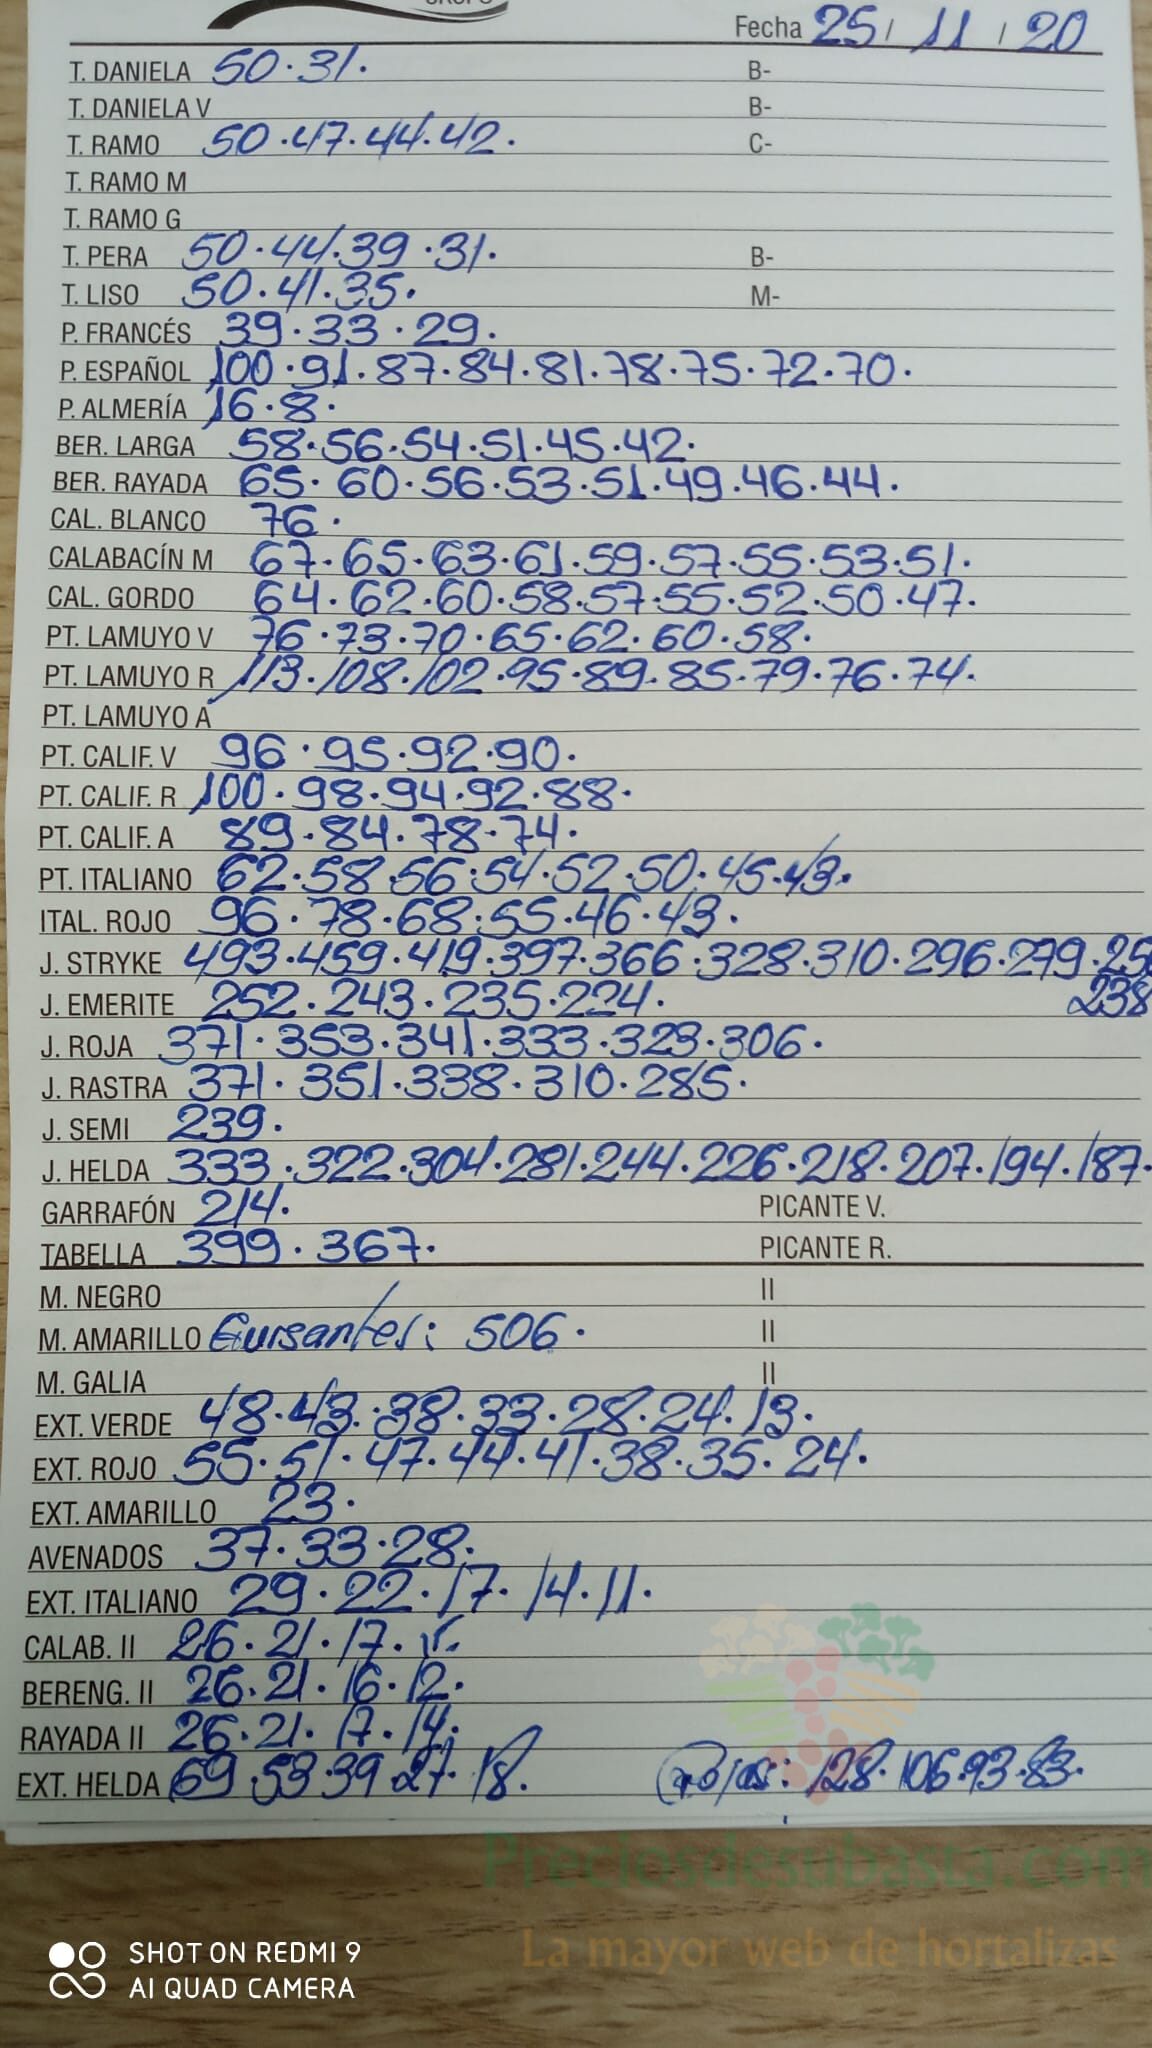 Fecha 25 / 11 / 20
T. DANELA 50.31. B-
T. DANIELA V B-
T. RAMO 50.47.44.42. C-
T. RAMO M
T. RAMO G
T. PERA 50.44.39.31. B-
T. LISO 50.41.35. M-
P. FRANCÉS 39.33.29.
P. ESPAÑOL 100.91.87.84.81.78.75.72.70.
P. ALMERÍA 16.8.
BER. LARGA 58.56.54.51.45.42.
BER. RAYADA 65.60.56.53.51.49.46.44.
CAL. BLANCO 76.
CALABACÍN M 67.65.63.61.59.57.55.53.51.
CAL. GORDO 64.62.60.58.57.55.52.50.47.
PT. LAMUYO V 76.73.70.65.62.60.58.
PT. LAMUYO R 113.108.102.95.89.85.79.76.74.
PT. LAMUYO A
PT. CALIF. V 96.95.92.90.
PT. CALIF. R 100.98.94.92.88.
PT. CALIF. A 89.84.78.74.
PT. ITALIANO 62.58.56.54.52.50.45.43.
ITAL. ROJO 96.78.68.55.46.43.
J. STRYKE 493.459.419.397.366.328.310.296.279.
238
J. EMERITE 252.243.235.224.
J. ROJA 371.353.341.333.323.306.
J. RASTRA 371.351.338.310.285.
J. SEMI 239.
J. HELDA 333.322.304.281.244.226.218.207.194.187.
GARRAFÓN 214. PICANTE V.
TABELLA 399.367. PICANTE R.
M. NEGRO II
M. AMARILLO Guisantes: 506. II
M. GALIA II
EXT. VERDE 48.43.38.33.28.24.13.
EXT. ROJO 55.51.47.44.41.38.35.24.
EXT. AMARILLO 23.
AVENADOS 37.33.28.
EXT. ITALIANO 29.22.17.14.11.
CALAB. II 26.21.17.
BERENG. II 26.21.16.12.
RAYADA II 26.21.17.14.
EXT. HELDA 69.53.39.27.18. Rojas: 128.106.93.83.
Preciosdesubasta.com
La mayor web de hortalizas
SHOT ON REDMI 9
AI QUAD CAMERA